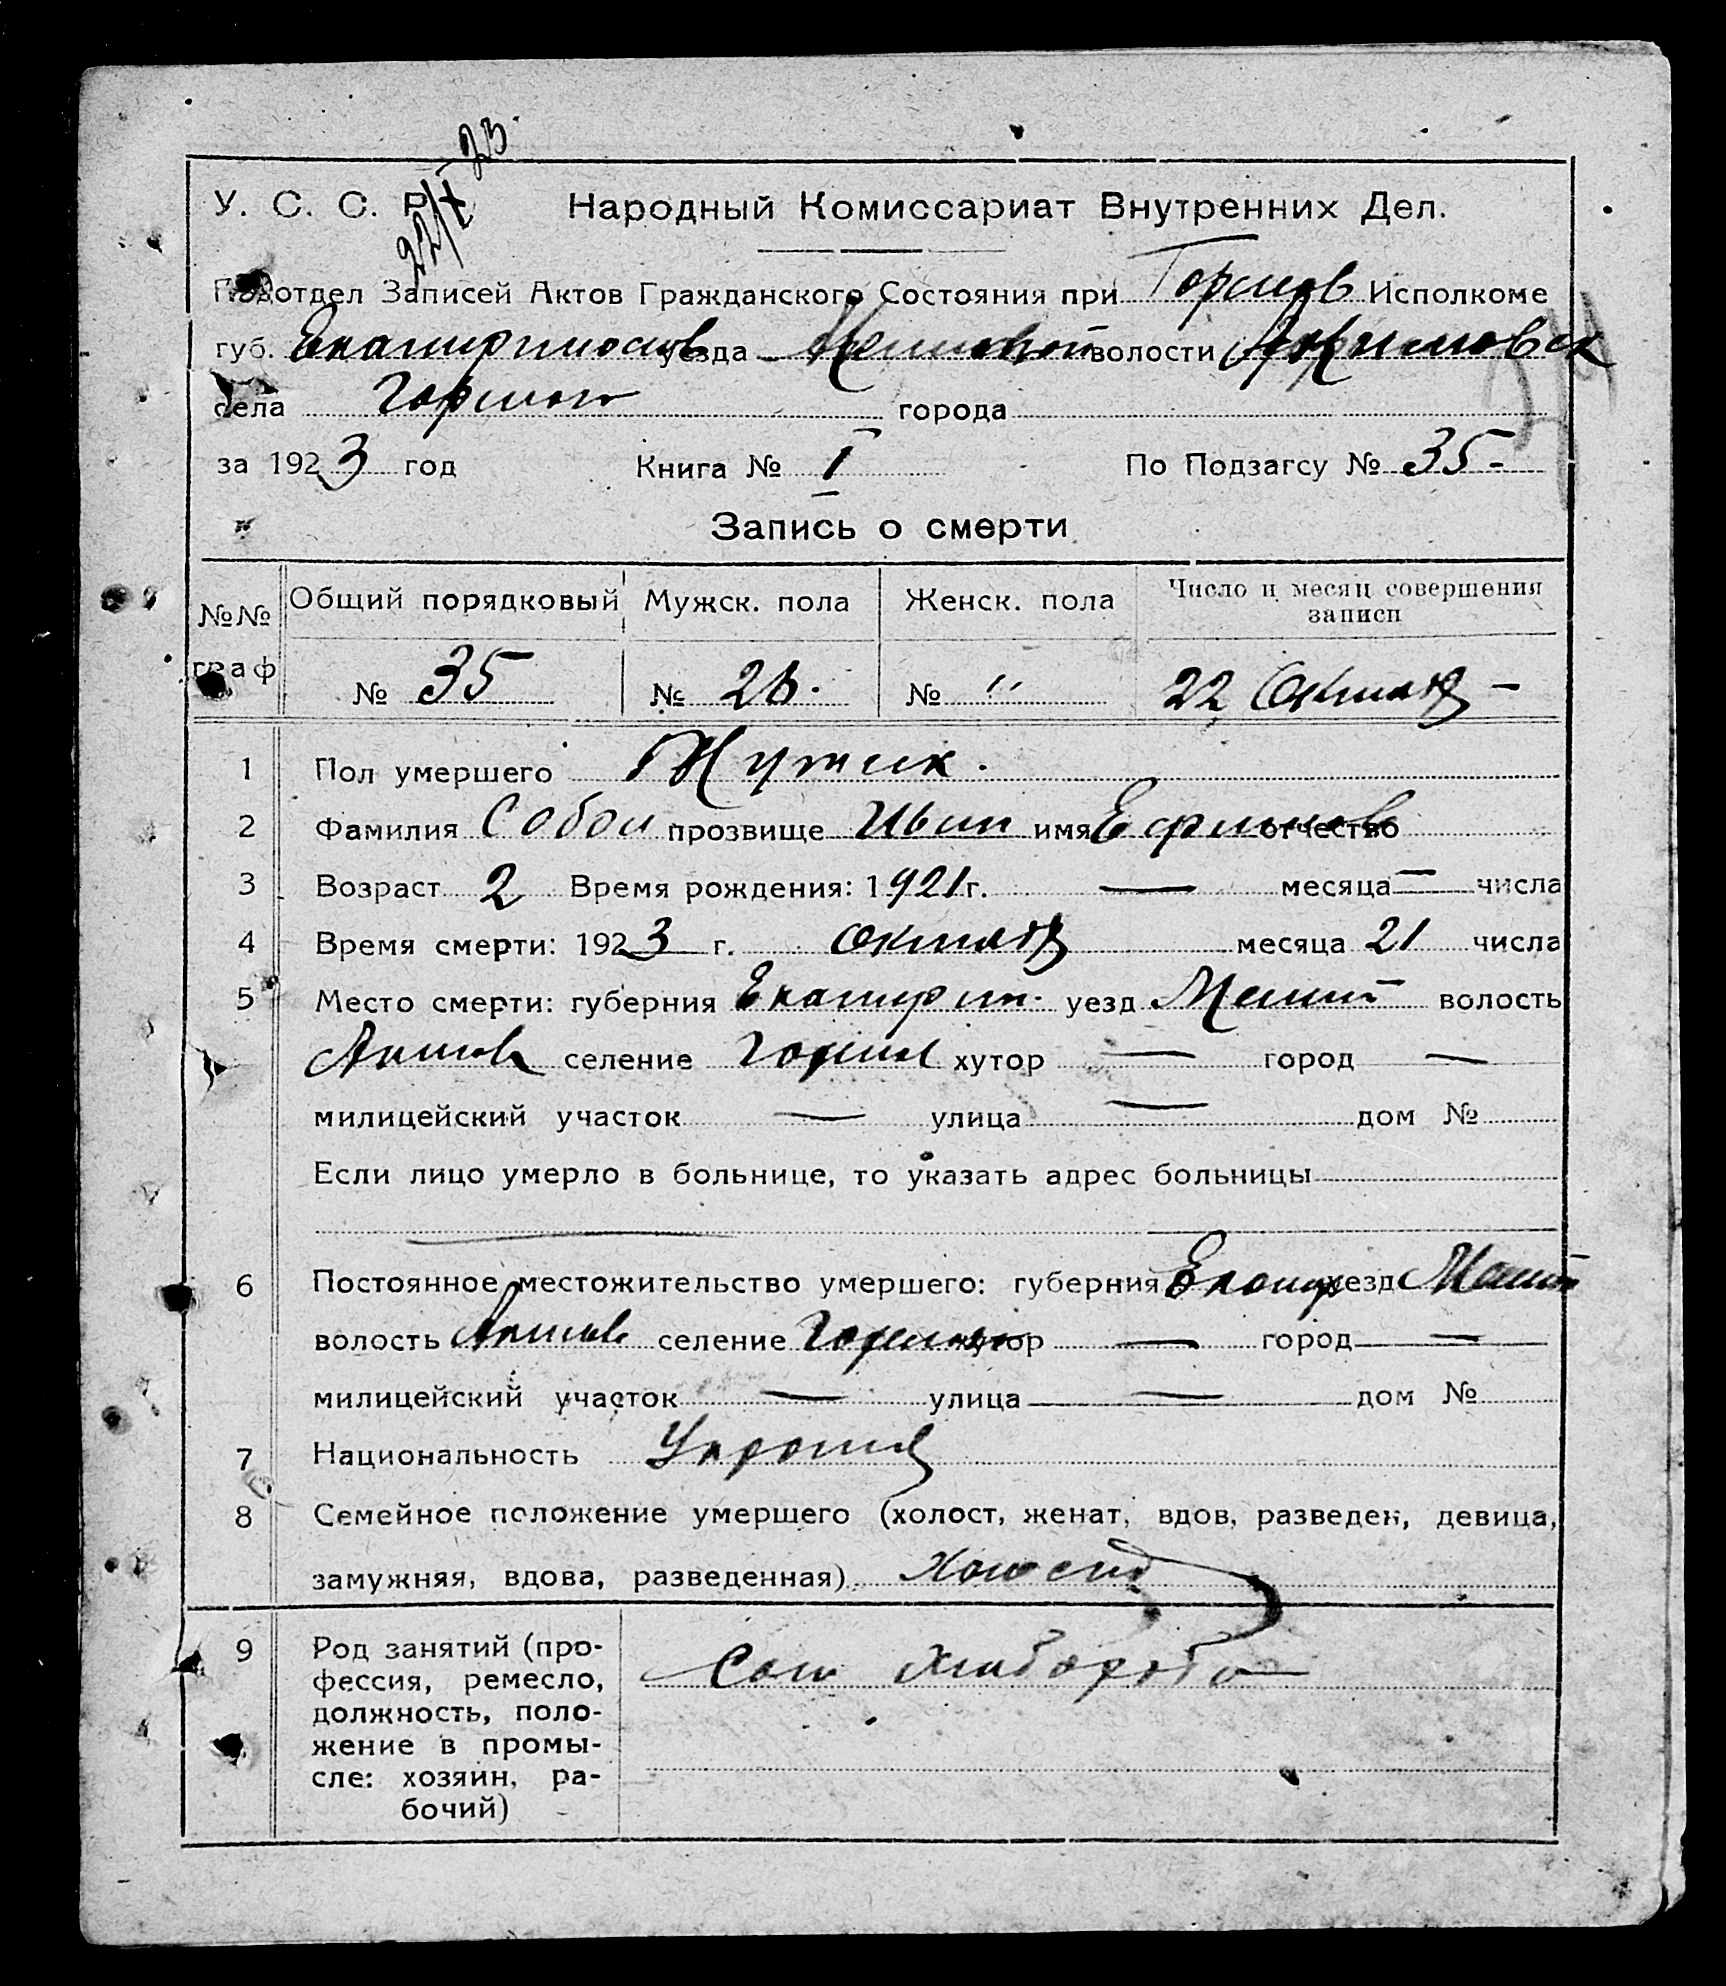 22/X-23.
У. С. С. Р. Народный Комиссариат Внутренних Дел.
Подотдел Записей Актов Гражданского Состояния при Исполкоме
губ. Екатеринослав уезда волости
села города
за 1923 год Книга № I По Подзагсу № 35-
Запись о смерти
№№ граф Общий порядковый Мужск. пола Женск. пола Число и месяц совершения записи
№ 35 № № " 22 Октяб –
1 Пол умершего Мужск.
2 Фамилия Собол прозвище Иван имя Ефимов отчество
3 Возраст 2 Время рождения: 1921 г. — месяца — числа
4 Время смерти: 1923 г. Октяб месяца 21 числа
5 Место смерти: губерния Екатерин. уезд волость
селение хутор — город —
милицейский участок — улица — дом №
Если лицо умерло в больнице, то указать адрес больницы
6 Постоянное местожительство умершего: губерния Екатер уезд
волость селение хутор — город —
милицейский участок — улица — дом №
7 Национальность
8 Семейное положение умершего (холост, женат, вдов, разведен, девица,
замужняя, вдова, разведенная) Холост
9 Род занятий (про-
фессия, ремесло,
должность, поло-
жение в промы-
сле: хозяин, ра-
бочий)